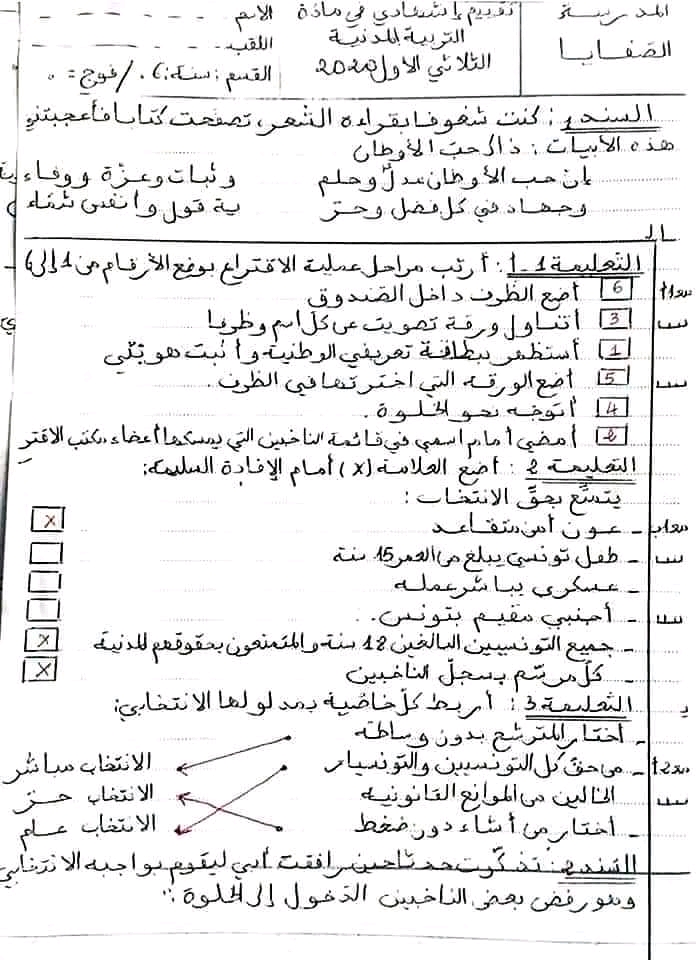 المدرسة
الصفايا
تقييم إشهادي في مادة
التربية المدنية
الثلاثي الأول 2020
الاسم
اللقب
القسم: سنة: / فوج =
السند 1: كنت شغوفا بقراءة الشعر، تصفحت كتابا فأعجبتني
هذه الأبيات: ذا لحب الأوطان
إن حب الأوطان عدل وحلم وثبات وعزة ووفاء
وجهاد في كل فضل وحق ية قول وأنفس شماء
التعليمة 1-1: أرتب مراحل عملية الاقتراع بوضع الأرقام من 1 إلى 6)
6 أضع الظرف داخل الصندوق
3 أتناول ورقة تصويت عن كل اسم وظرفا
1 أستظهر ببطاقة تعريفي الوطنية وأثبت هويتي
5 أضع الورقة التي اخترتها في الظرف.
4 أتوجه نحو الخلوة.
2 أمضي أمام اسمي في قائمة الناخبين التي يمسكها أعضاء مكتب الاقتر
التعليمة 2: أضع العلامة (x) أمام الإفادة السليمة:
يتمتع بحق الانتخاب:
- عون أمن متقاعد x
- طفل تونسي يبلغ من العمر 15 سنة
- عسكري يباشر عمله
- أجنبي مقيم بتونس.
- جميع التونسيين البالغين 18 سنة والمتمتعون بحقوقهم المدنية x
- كل مرسم بسجل الناخبين x
التعليمة 3: أربط كل خاصية بمدلولها الانتخابي:
- أختار المترشح بدون وساطة
- من حق كل التونسيين والتونسيات الانتخاب مباشر
الخالين من الموانع القانونية الانتخاب حر
- أختار من أشاء دون ضغط الانتخاب عام
السند 2: تذكرت حدثا حين رافقت أبي ليقوم بواجبه الانتخابي
وهو رفض بعض الناخبين الدخول إلى الخلوة: